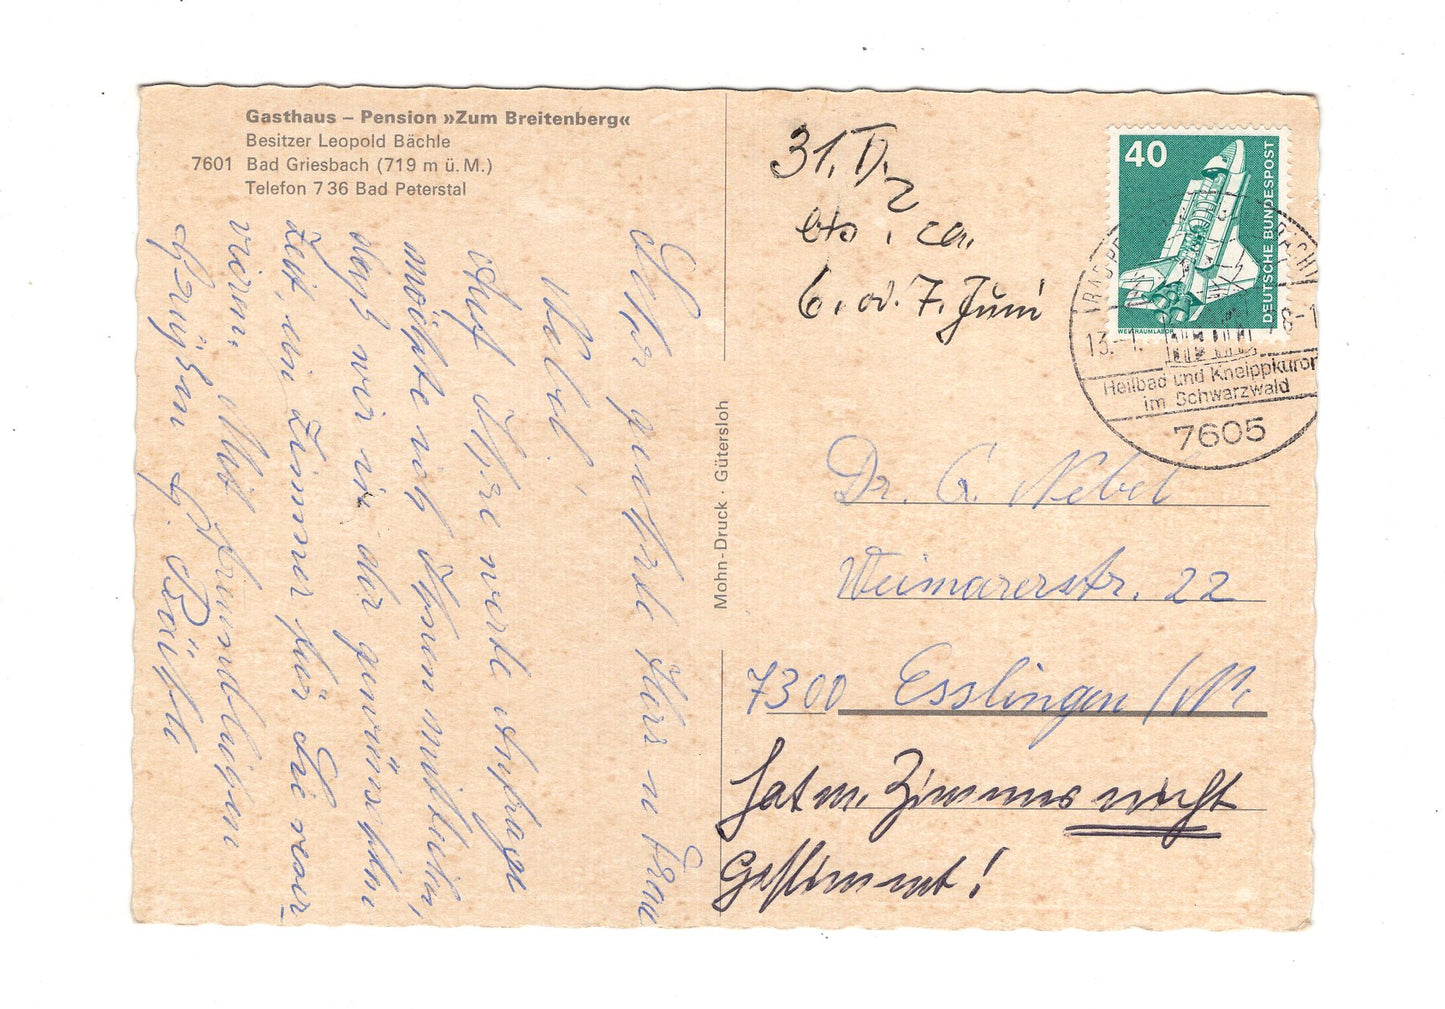 Gasthaus – Pension »Zum Breitenberg«
Besitzer Leopold Bächle
7601 Bad Griesbach (719 m ü. M.)
Telefon 7 36 Bad Peterstal
Sehr geehrte Herr u Frau
Nebel!
Auf Ihre werte Anfrage
möchte ich Ihnen mitteilen,
dass wir in der gewünschten
Zeit, ein Zimmer für Sie reser-
vieren. Mit freundlichen
Grüßen Bächle
Mohn-Druck · Gütersloh
31.
bis ca.
6. od. 7. Juni
40
DEUTSCHE BUNDESPOST
WELTRAUMLABOR
13.-1.
8-1
Heilbad und Kneippkuror
im Schwarzwald
7605
Dr. G. Nebel
Weimarerstr. 22
7300 Esslingen/N.
hat m. Zimmer nicht
Gestimmt!